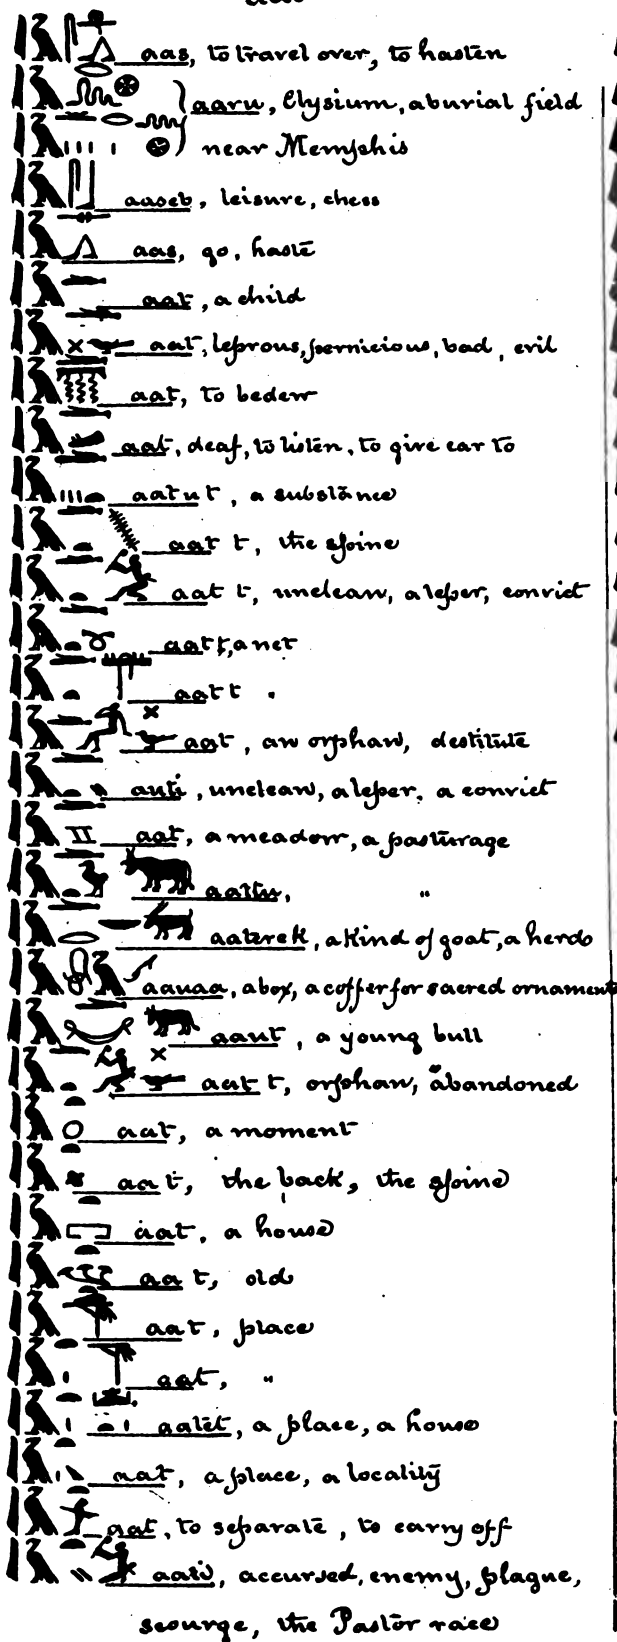 aas, to travel over, to hasten
aaru, Elysium, a burial field
near Memphis
aaseb, leisure, chess
aas, go, haste
aat, a child
aat, leprous, pernicious, bad, evil
aat, to bedew
aat, deaf, to listen, to give ear to
aatut, a substance
aat t, the spine
aat t, unclean, a leper, convict
aat t, a net
aat t .
aat, an orphan, destitute
auti, unclean, a leper, a convict
aat, a meadow, a pasturage
aattu, "
aaterek, a kind of goat, a herd
aauaa, a box, a coffer for sacred ornaments
aaut, a young bull
aat t, orphan, abandoned
aat, a moment
aat, the back, the spine
aat, a house
aat, old
aat, place
aat, "
aatet, a place, a house
aat, a place, a locality
aat, to separate, to carry off
aati, accursed, enemy, plague,
scourge, the Pastor race